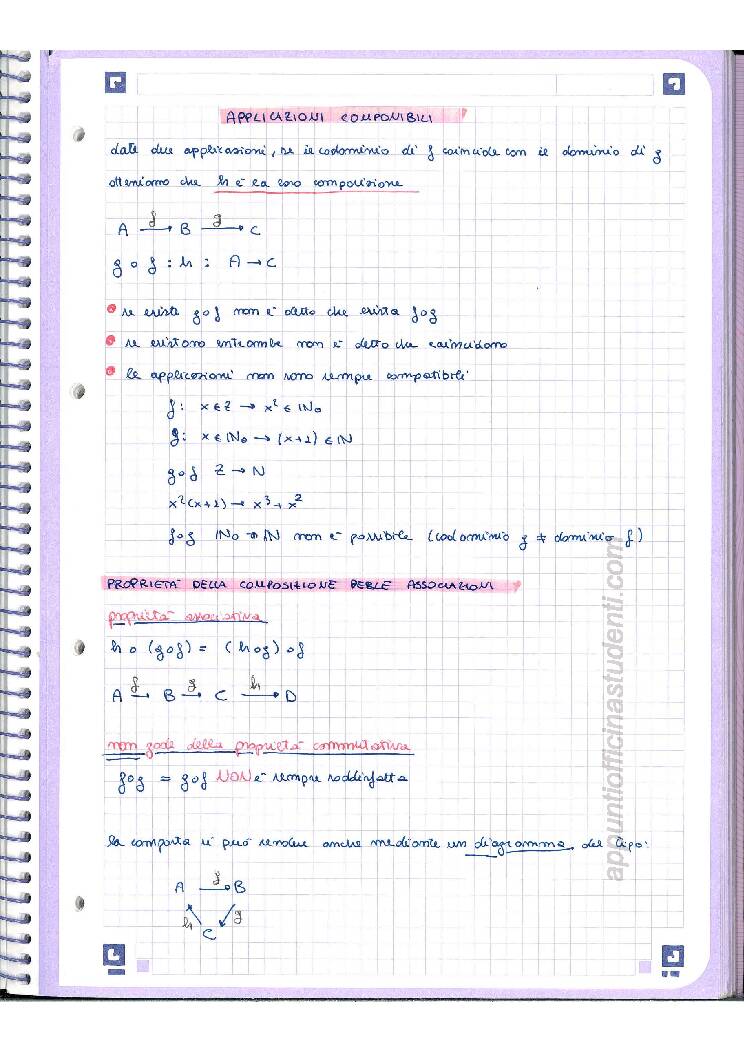 APPLICAZIONI COMPONIBILI
date due applicazioni, se il codominio di f coincide con il dominio di g
otteniamo che h è la loro composizione
A —f→ B —g→ C
g o f : h : A → C
• se esiste g o f non è detto che esista f o g
• se esistono entrambe non è detto che coincidono
• le applicazioni non sono sempre compatibili
f: x ∈ Z → x² ∈ IN₀
g: x ∈ IN₀ → (x+1) ∈ IN
g o f Z → N
x²(x+1) → x³ + x²
f o g IN₀ → IN non è possibile (codominio g ≠ dominio f)
PROPRIETÀ DELLA COMPOSIZIONE DELLE ASSOCIAZIONI
proprietà associativa
h o (g o f) = (h o g) o f
A —f→ B —g→ C —h→ D
non gode della proprietà commutativa
f o g = g o f NON è sempre soddisfatta
la composta si può rendere anche mediante un diagramma del tipo:
A —f→ B
h g
C
appuntiofficinastudenti.com